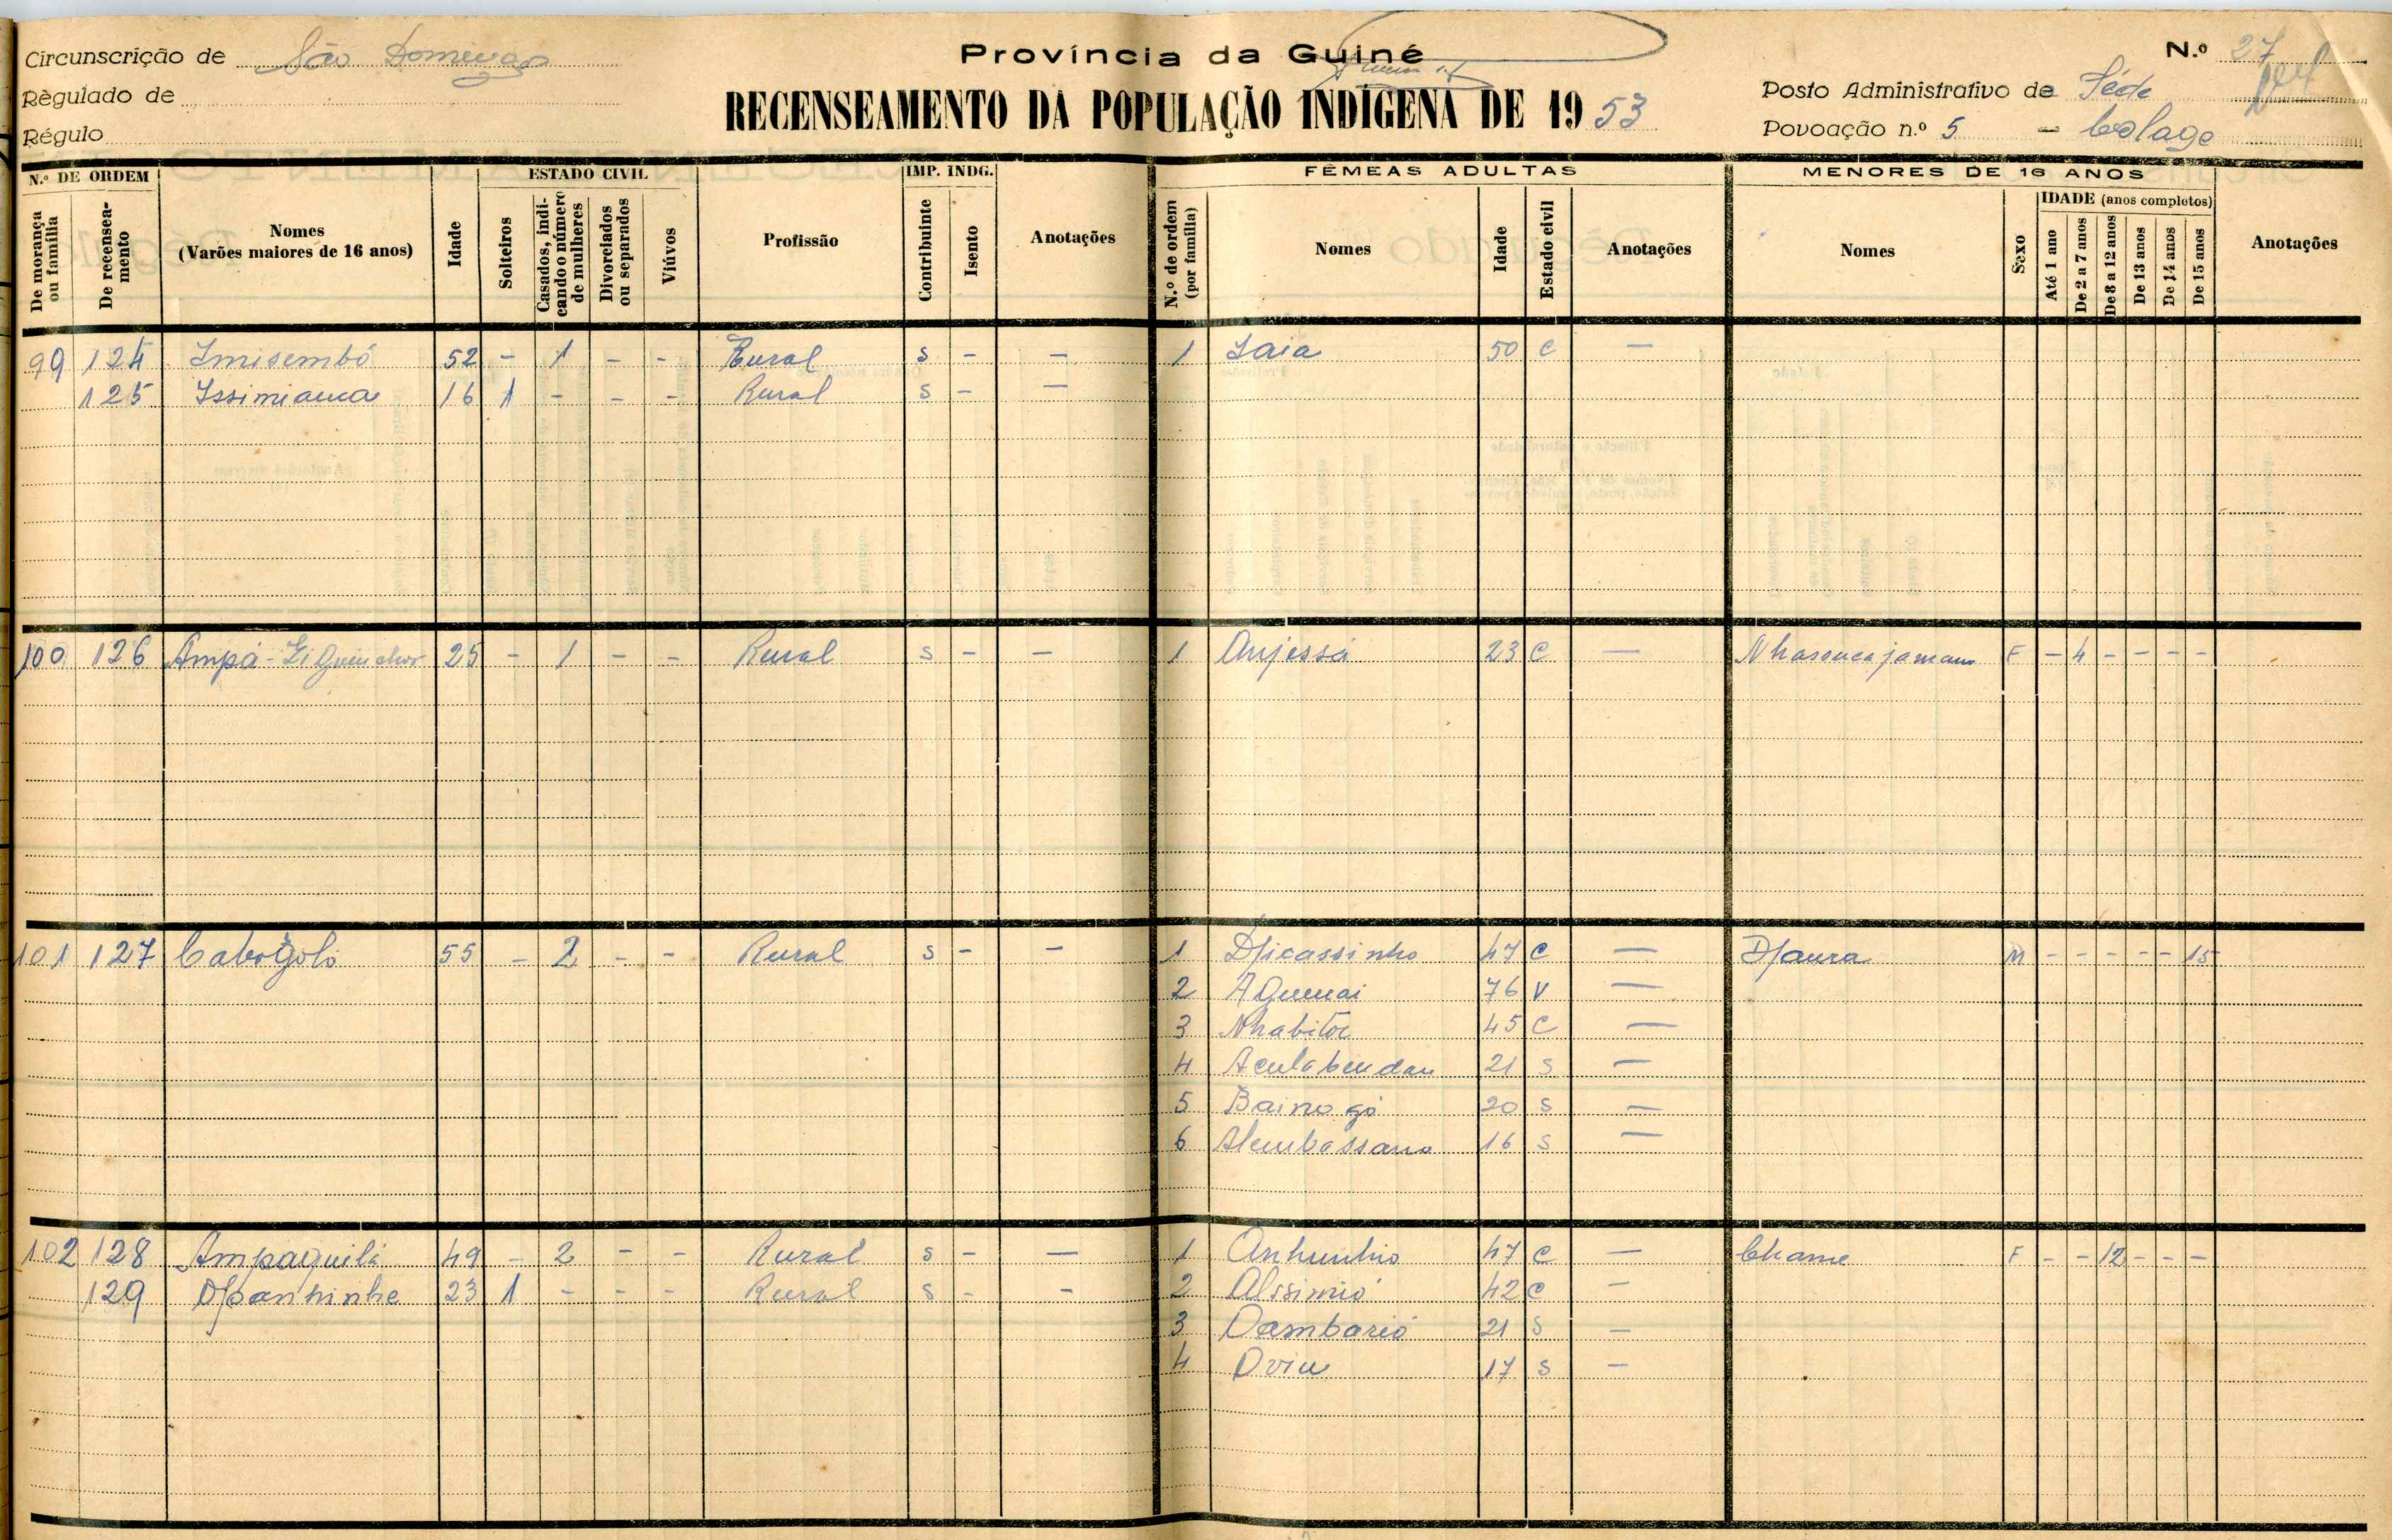 Circunscrição de São Domingos
Província da Guiné
N.º 27
Règulado de
RECENSEAMENTO DA POPULAÇÃO INDÍGENA DE 1953
Posto Administrativo de Séde
Régulo
Povoação n.º 5 - Colage
N.º DE ORDEM
ESTADO CIVIL
IMP. INDG.
FÊMEAS ADULTAS
MENORES DE 16 ANOS
De morança ou família
De recenseamento
Nomes (Varões maiores de 16 anos)
Idade
Solteiros
Casados, indicando o número de mulheres
Divorciados ou separados
Viúvos
Profissão
Contribuinte
Isento
Anotações
N.º de ordem (por família)
Nomes
Idade
Estado civil
Anotações
Nomes
Sexo
IDADE (anos completos)
Até 1 ano
De 2 a 7 anos
De 8 a 12 anos
De 13 anos
De 14 anos
De 15 anos
Anotações
99 124 Imisembó 52 - 1 - - Rural S - - 1 Iaia 50 C -
125 Issimiama 16 1 - - - Rural S - -
100 126 Ampá-Ziguinchor 25 - 1 - - Rural S - - 1 Anjessá 23 C - F - 4 - - - -
101 127 55 - 2 - - Rural S - - 1 Djicassinho 47 C - Djaura M - - - - - 15
2 Agumai 76 V -
3 Nhabitoe 45 C -
4 Aculabendau 21 S -
5 Bainogó 20 S -
6 Alembassano 16 S -
102 128 Ampaquilá 49 - 2 - - Rural S - - 1 Anhunhio 47 C - Chame F - - 12 - - -
129 Djanhinhe 23 1 - - - Rural S - - 2 Alssimió 42 C -
3 Dambarió 21 S -
4 17 S -